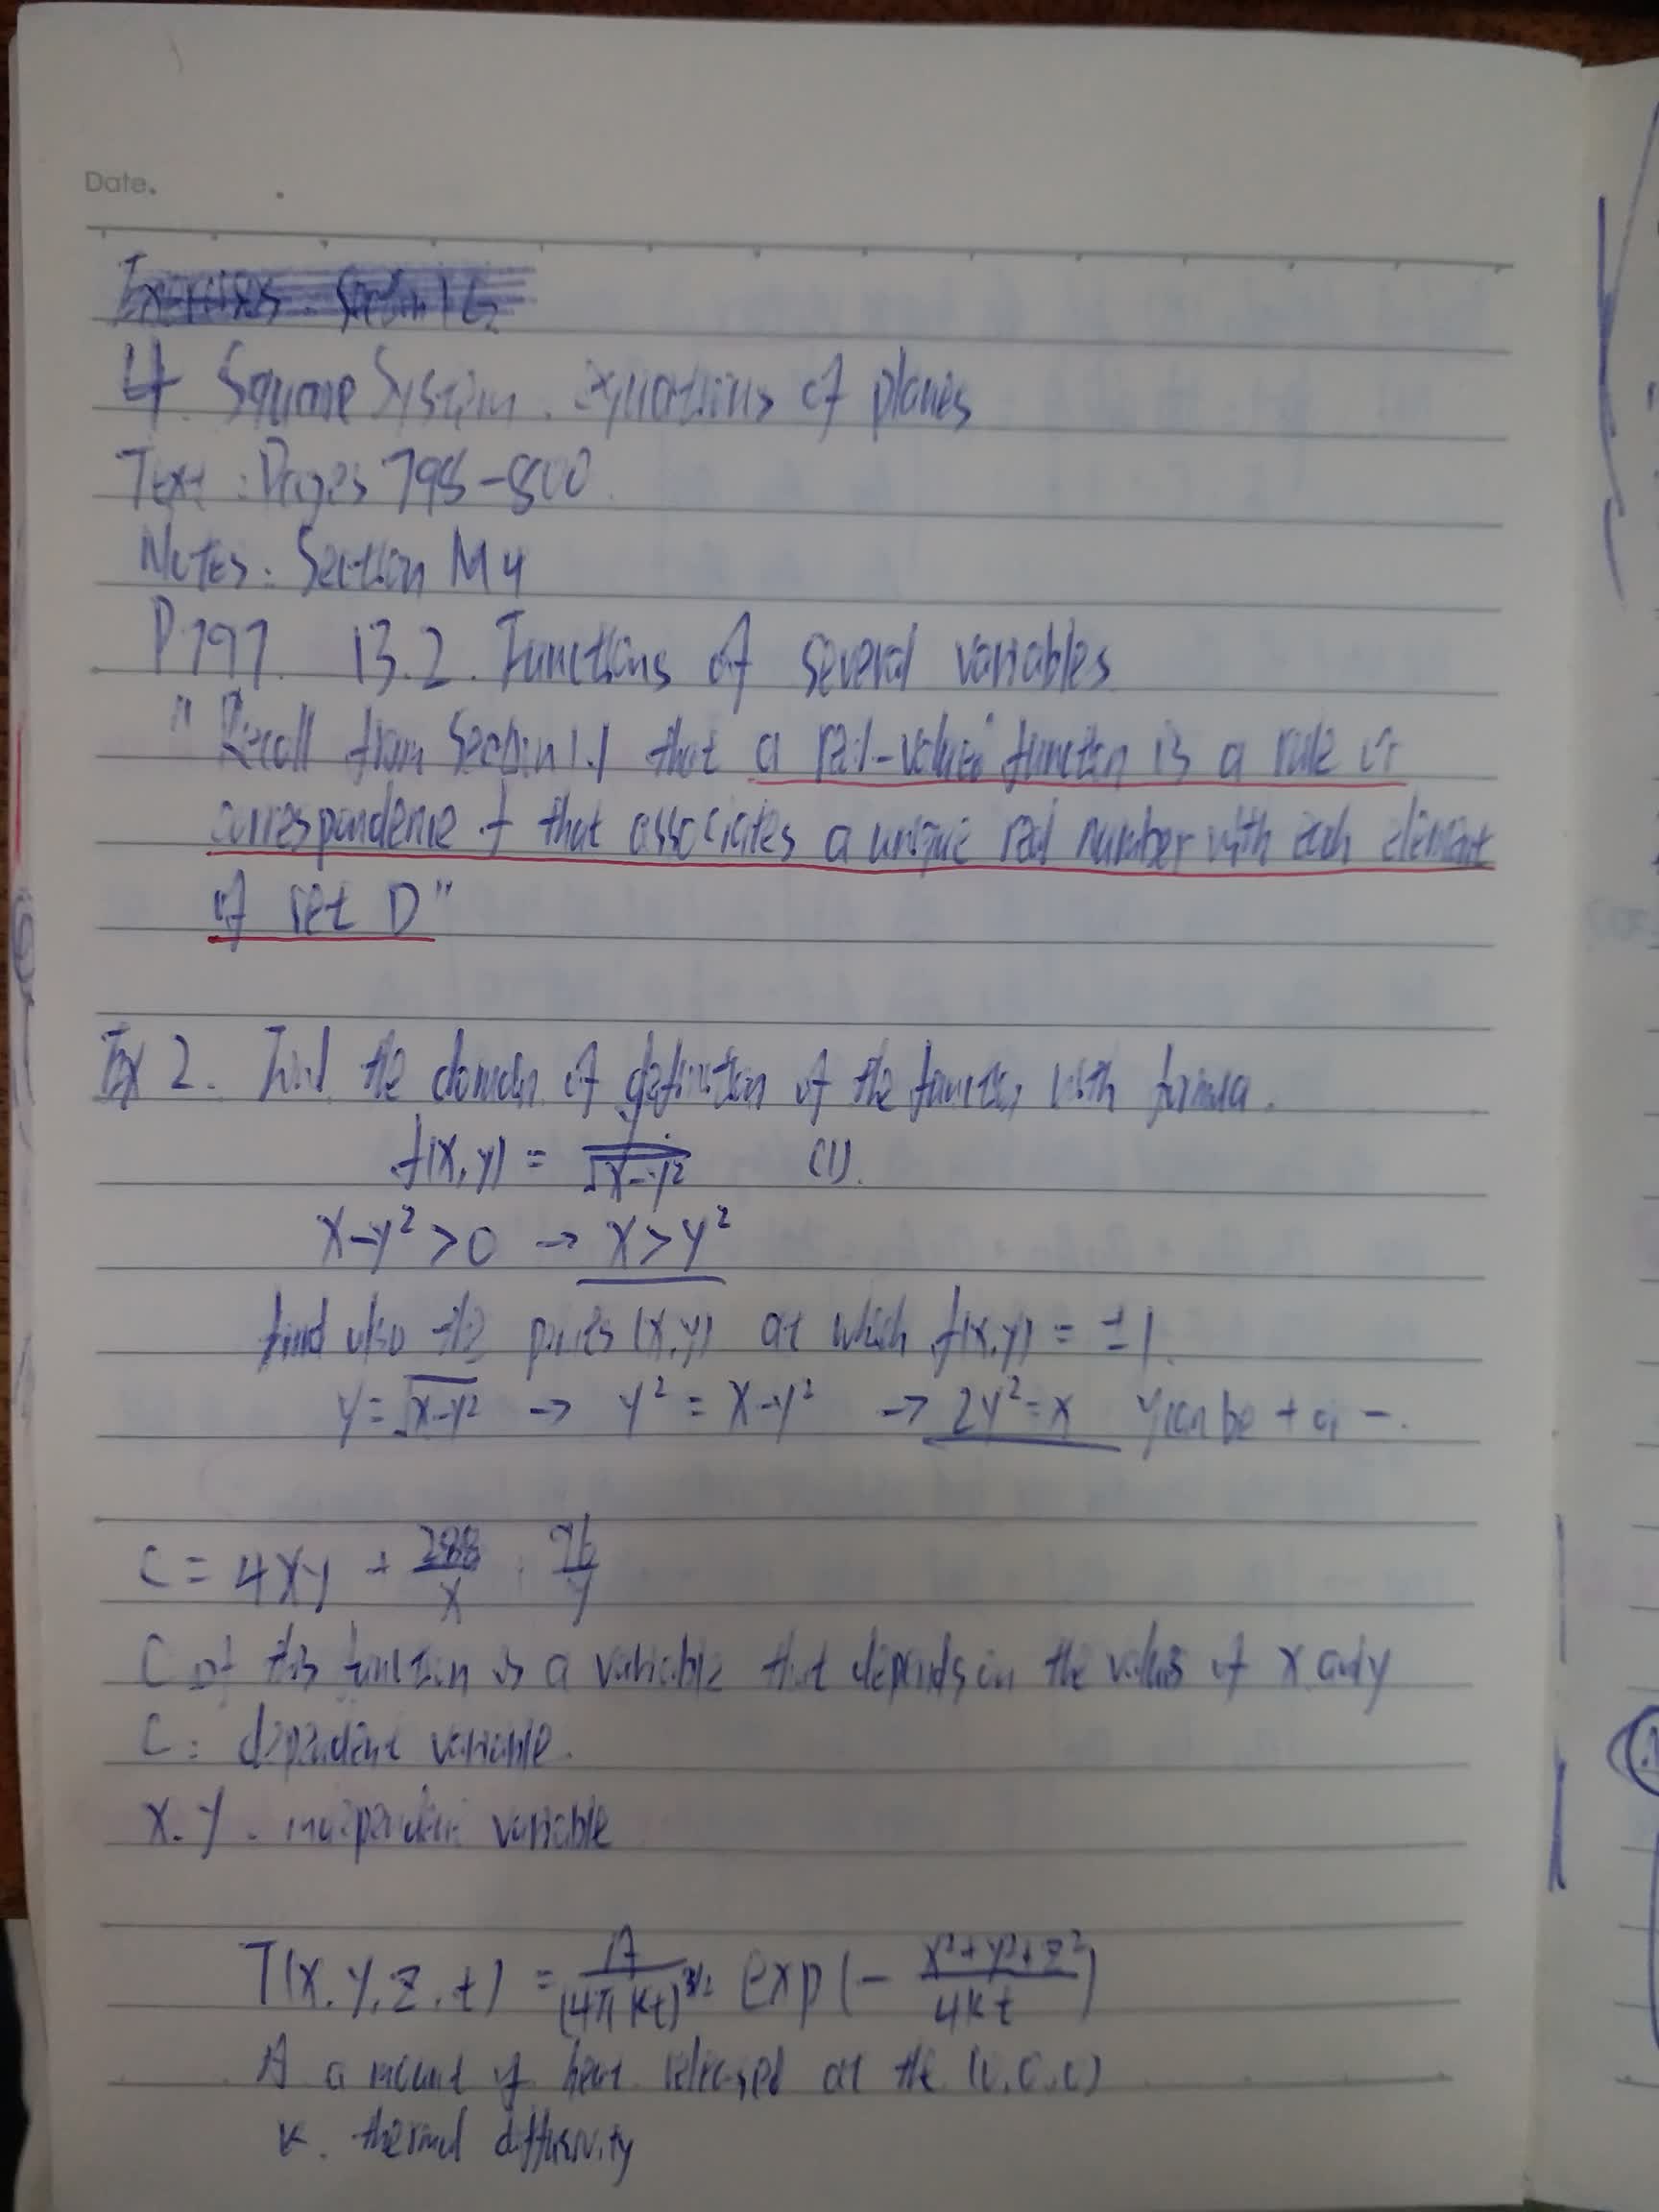 Date.
Exercises. Section 1G
4. Square System. equations of planes
Text: Pages 798-800
Notes: Section M4
P797. 13.2. Functions of several variables
" Recall from Section 1.1 that a real-valued function is a rule or
correspondence f that associates a unique real number with each element
of set D"
Ex 2. Find the domain of definition of the function with formula.
f(x,y) = y/√(x-y²) (1).
x-y²>0 → x>y²
find also the points (x,y) at which f(x,y) = ±1.
y=√(x-y²) → y² = x-y² → 2y²=x y can be + or -.
C = 4xy + 288/x + 96/y
C of this function is a variable that depends on the values of x and y
C: dependent variable.
x. y. independent variable
T(x, y, z, t) = A/(4πkt)^3/2 exp(- (x²+y²+z²)/4kt)
A amount of heat released at the (0,0,0)
k. thermal diffusivity